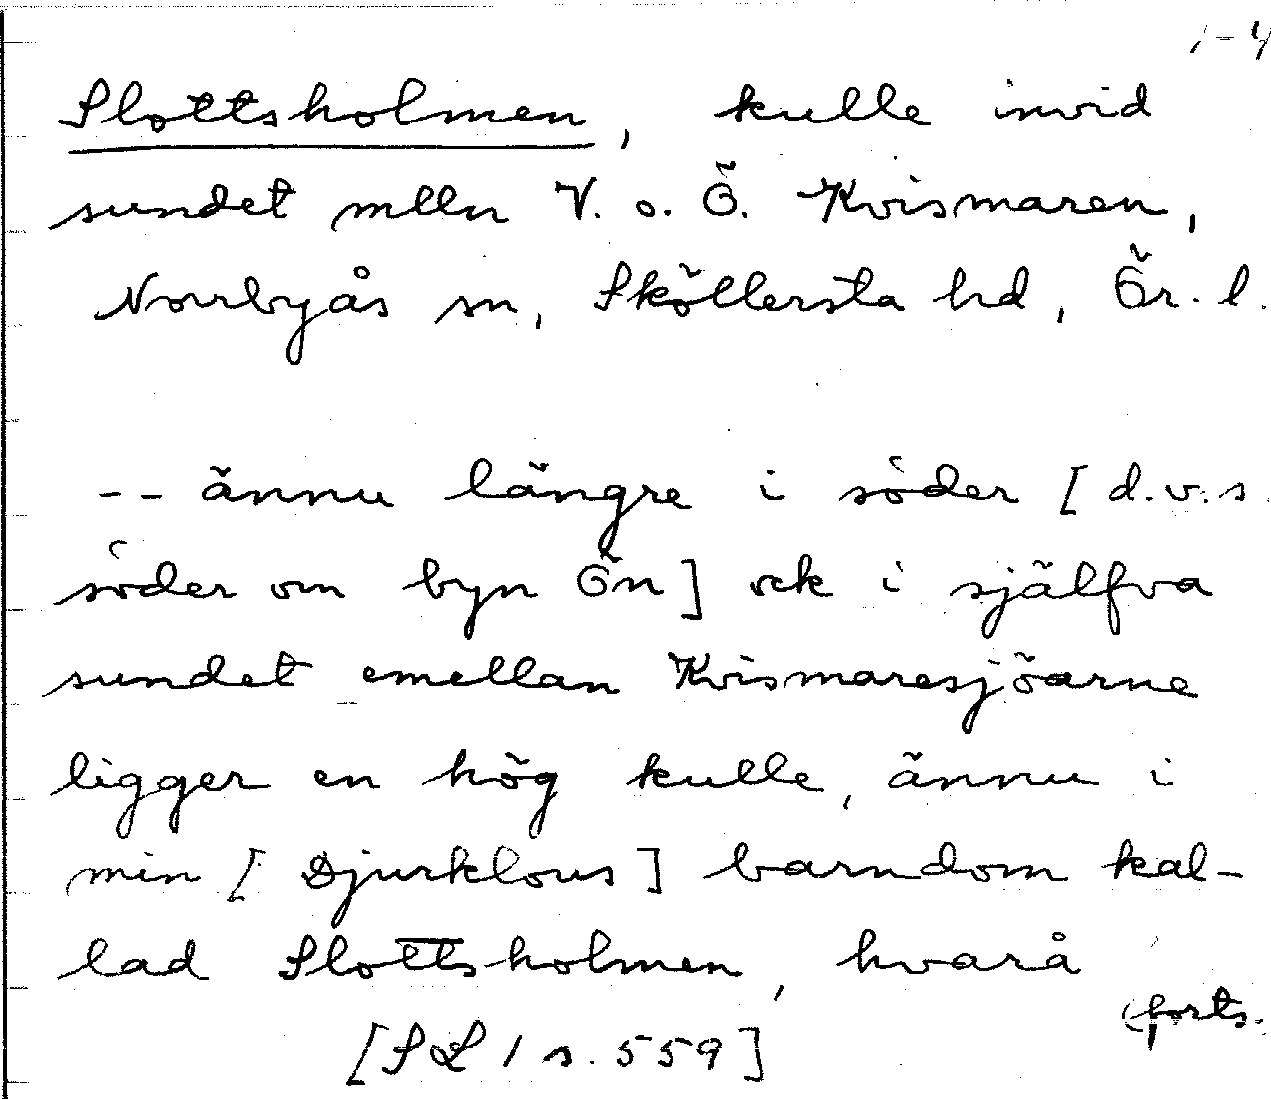 1-4
Slottsholmen, kulle invid
sundet mlln V. o. Ö. Kvismaren,
Norrbyås sn, Sköllersta hd, Ör. l.
-- ännu längre i söder [d.v.s.
söder om byn Ön] ock i själfva
sundet emellan Kvismaresjöarne
ligger en hög kulle, ännu i
min [Djurklous] barndom kal-
lad Slottsholmen, hvarå
(forts.
[SL 1 s. 559]